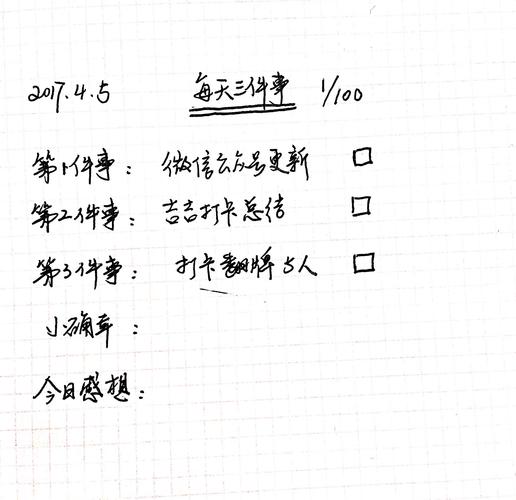 2017.4.5 每天三件事 1/100
第1件事：微信公众号更新 □
第2件事：吉吉打卡总结 □
第3件事：打卡翻牌5人 □
小确幸：
今日感想：